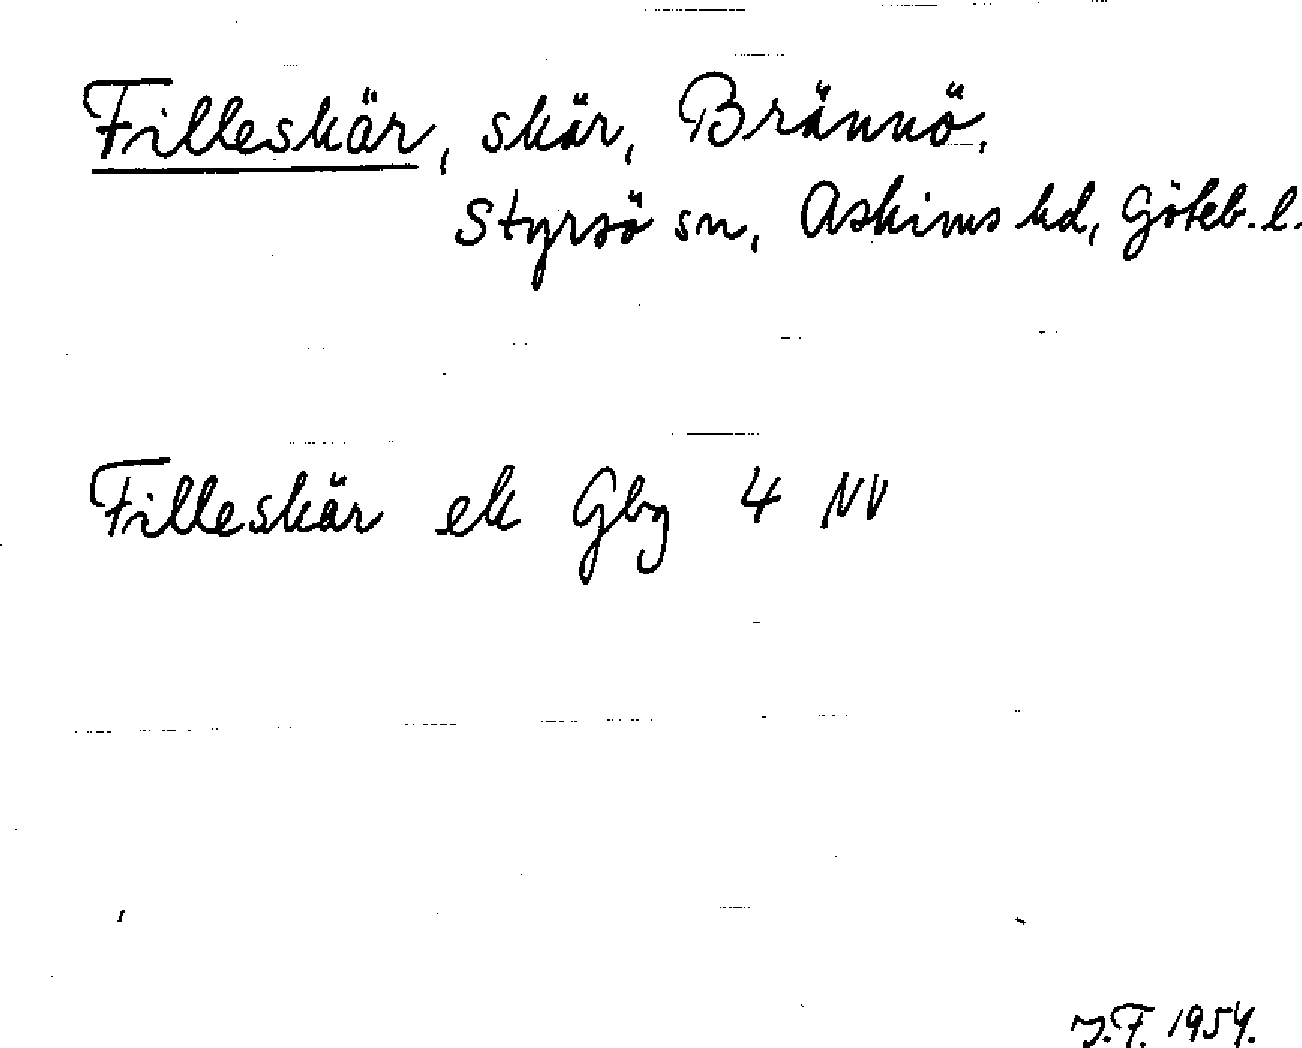 Filleskär, skär, Brännö,
Styrsö sn, Askims hd, Göteb. l.
Filleskär ek Gbg 4 NV
J.F. 1954.